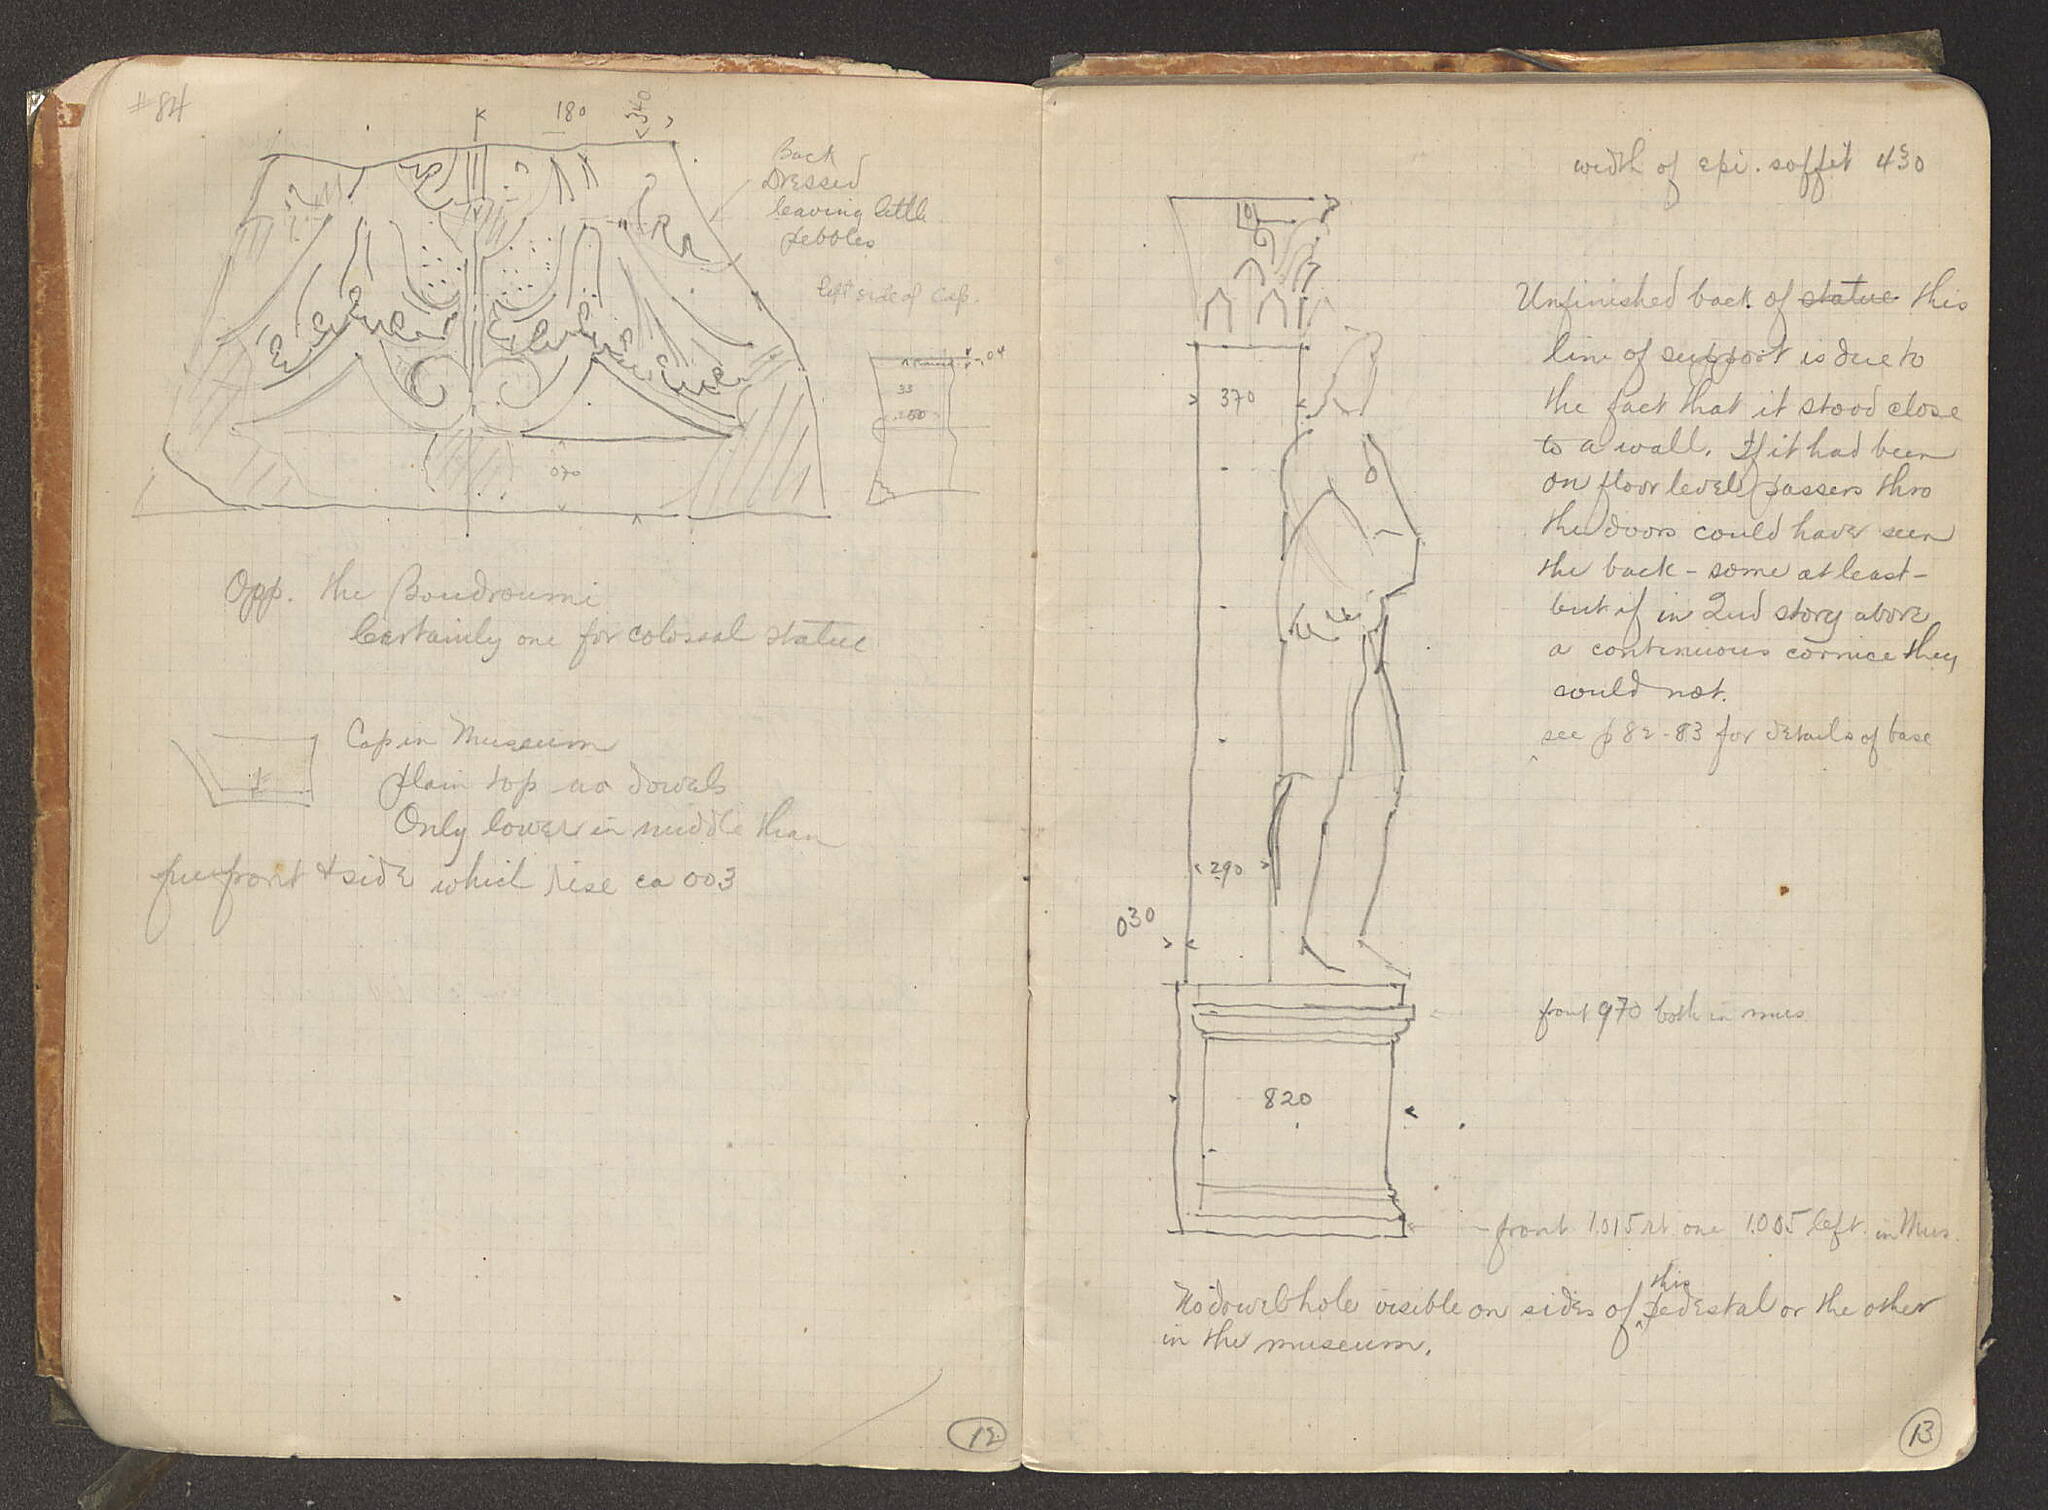 #84
180
340
Back
Dressed
leaving little
pebbles
left side of cap.
04
33
070
Opp. the Boudroumi
Certainly one for colossal statue
Cap in Museum
plain top no dowels
Only lower in middle than
front & side which rise ca 003
12
width of epi. soffit 430
Unfinished back of statue this
line of support is due to
the fact that it stood close
to a wall. If it had been
on floor level passers thro
the doors could have seen
the back - some at least -
but if in 2nd story above
a continuous cornice they
could not.
see p 82-83 for details of base
370
290
030
front 970 both in mus
820
front 1.015 rt one 1.005 left in Mus.
No dowel hole visible on sides of this pedestal or the other
in the museum.
13